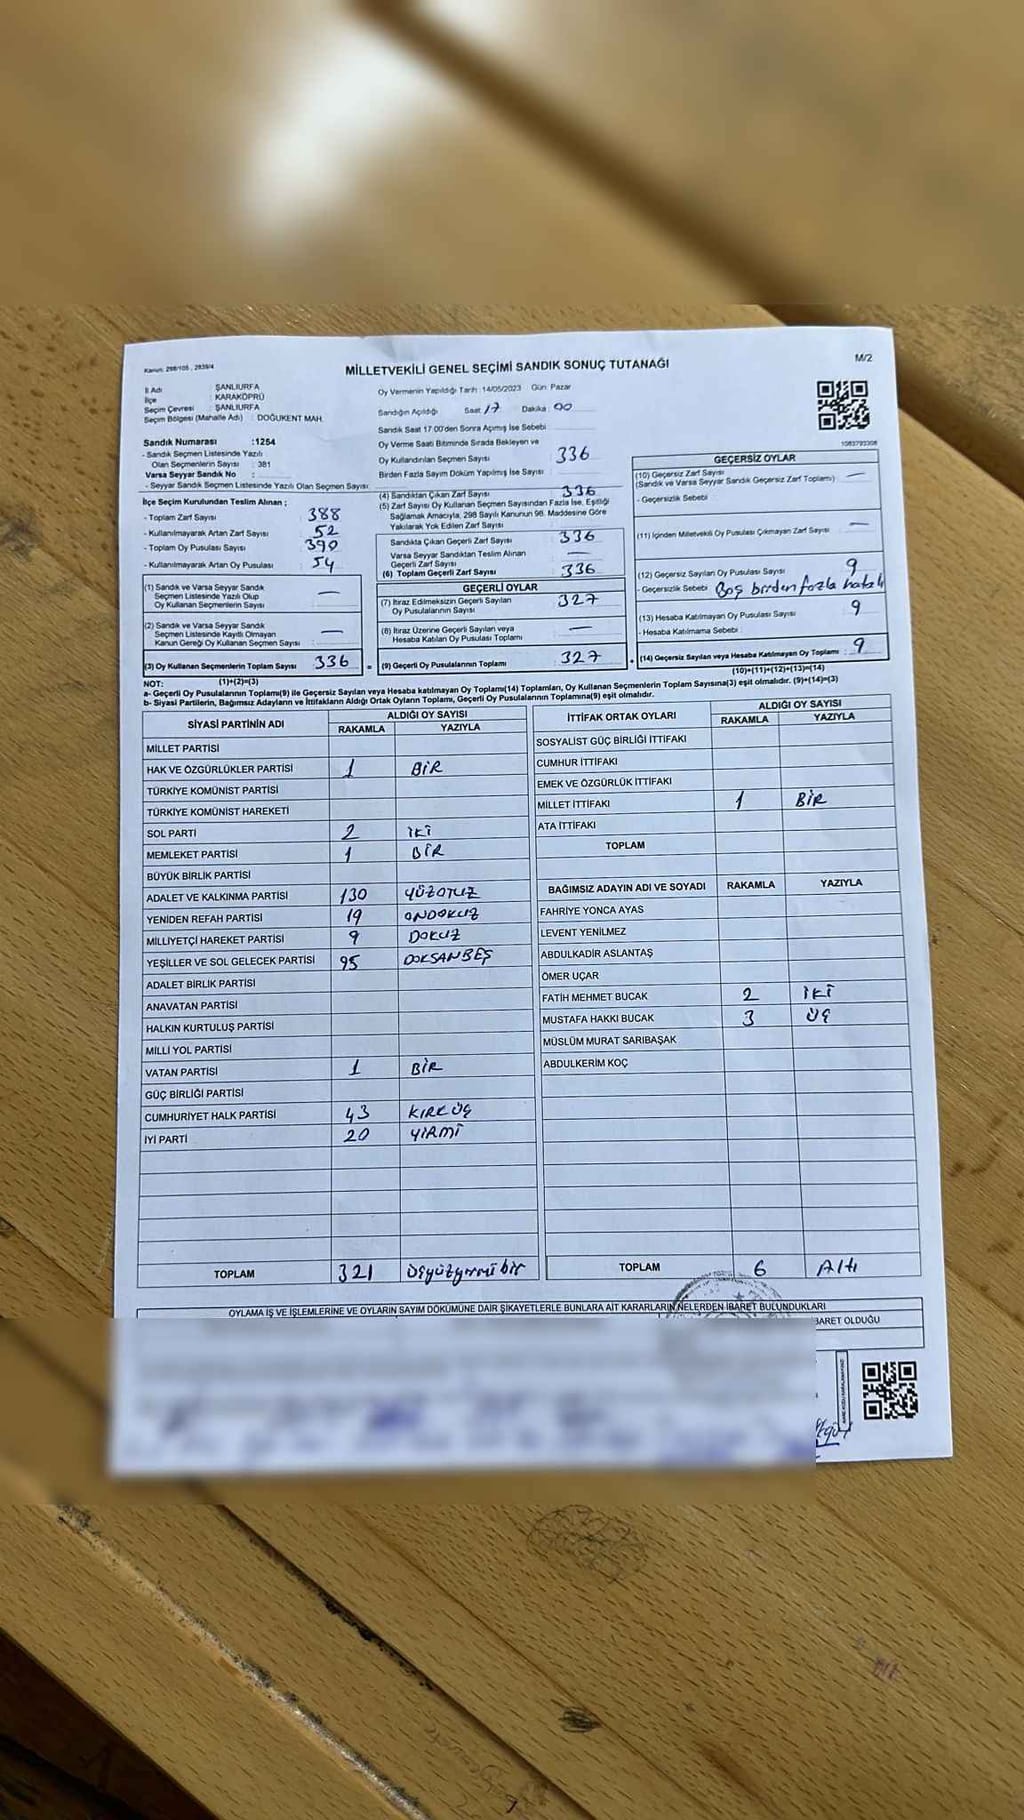 Kanun: 298/105 , 2839/4
MİLLETVEKİLİ GENEL SEÇİMİ SANDIK SONUÇ TUTANAĞI
M/2
İl Adı : ŞANLIURFA
İlçe : KARAKÖPRÜ
Seçim Çevresi : ŞANLIURFA
Seçim Bölgesi (Mahalle Adı) : DOĞUKENT MAH.
Sandık Numarası :1254
- Sandık Seçmen Listesinde Yazılı
Olan Seçmenlerin Sayısı : 381
Varsa Seyyar Sandık No :
- Seyyar Sandık Seçmen Listesinde Yazılı Olan Seçmen Sayısı:
Oy Vermenin Yapıldığı Tarih : 14/05/2023 Gün: Pazar
Sandığın Açıldığı Saat 17 Dakika 00
Sandık Saat 17:00'den Sonra Açılmış İse Sebebi
Oy Verme Saati Bitiminde Sırada Bekleyen ve
Oy Kullandırılan Seçmen Sayısı 336
Birden Fazla Sayım Döküm Yapılmış İse Sayısı
1083793308
İlçe Seçim Kurulundan Teslim Alınan ;
- Toplam Zarf Sayısı 388
- Kullanılmayarak Artan Zarf Sayısı 52
- Toplam Oy Pusulası Sayısı 390
- Kullanılmayarak Artan Oy Pusulası 54
(1) Sandık ve Varsa Seyyar Sandık
Seçmen Listesinde Yazılı Olup
Oy Kullanan Seçmenlerin Sayısı —
(2) Sandık ve Varsa Seyyar Sandık
Seçmen Listesinde Kayıtlı Olmayan
Kanun Gereği Oy Kullanan Seçmen Sayısı : —
(3) Oy Kullanan Seçmenlerin Toplam Sayısı 336 =
(4) Sandıktan Çıkan Zarf Sayısı 336
(5) Zarf Sayısı Oy Kullanan Seçmen Sayısından Fazla İse, Eşitliği
Sağlamak Amacıyla, 298 Sayılı Kanunun 98. Maddesine Göre
Yakılarak Yok Edilen Zarf Sayısı
Sandıkta Çıkan Geçerli Zarf Sayısı 336
Varsa Seyyar Sandıktan Teslim Alınan
Geçerli Zarf Sayısı —
(6) Toplam Geçerli Zarf Sayısı 336
GEÇERLİ OYLAR
(7) İtiraz Edilmeksizin Geçerli Sayılan
Oy Pusulalarının Sayısı 327
(8) İtiraz Üzerine Geçerli Sayılan veya
Hesaba Katılan Oy Pusulası Toplamı —
(9) Geçerli Oy Pusulalarının Toplamı 327 +
GEÇERSİZ OYLAR
(10) Geçersiz Zarf Sayısı
(Sandık ve Varsa Seyyar Sandık Geçersiz Zarf Toplamı) —
- Geçersizlik Sebebi :
(11) İçinden Milletvekili Oy Pusulası Çıkmayan Zarf Sayısı —
(12) Geçersiz Sayılan Oy Pusulası Sayısı 9
- Geçersizlik Sebebi : Boş birden fazla hatalı
(13) Hesaba Katılmayan Oy Pusulası Sayısı 9
- Hesaba Katılmama Sebebi :
(14) Geçersiz Sayılan veya Hesaba Katılmayan Oy Toplamı : 9
NOT: (1)+(2)=(3)
(10)+(11)+(12)+(13)=(14)
a- Geçerli Oy Pusulalarının Toplamı(9) ile Geçersiz Sayılan veya Hesaba katılmayan Oy Toplamı(14) Toplamları, Oy Kullanan Seçmenlerin Toplam Sayısına(3) eşit olmalıdır. (9)+(14)=(3)
b- Siyasi Partilerin, Bağımsız Adayların ve İttifakların Aldığı Ortak Oyların Toplamı, Geçerli Oy Pusulalarının Toplamına(9) eşit olmalıdır.
SİYASİ PARTİNİN ADI ALDIĞI OY SAYISI
RAKAMLA YAZIYLA
MİLLET PARTİSİ
HAK VE ÖZGÜRLÜKLER PARTİSİ 1 BİR
TÜRKİYE KOMÜNİST PARTİSİ
TÜRKİYE KOMÜNİST HAREKETİ
SOL PARTİ 2 İKİ
MEMLEKET PARTİSİ 1 BİR
BÜYÜK BİRLİK PARTİSİ
ADALET VE KALKINMA PARTİSİ 130 YÜZOTUZ
YENİDEN REFAH PARTİSİ 19 ONDOKUZ
MİLLİYETÇİ HAREKET PARTİSİ 9 DOKUZ
YEŞİLLER VE SOL GELECEK PARTİSİ 95 DOKSANBEŞ
ADALET BİRLİK PARTİSİ
ANAVATAN PARTİSİ
HALKIN KURTULUŞ PARTİSİ
MİLLİ YOL PARTİSİ
VATAN PARTİSİ 1 BİR
GÜÇ BİRLİĞİ PARTİSİ
CUMHURİYET HALK PARTİSİ 43 KIRKÜÇ
İYİ PARTİ 20 YİRMİ
TOPLAM 321 üçyüzyirmibir
İTTİFAK ORTAK OYLARI ALDIĞI OY SAYISI
RAKAMLA YAZIYLA
SOSYALİST GÜÇ BİRLİĞİ İTTİFAKI
CUMHUR İTTİFAKI
EMEK VE ÖZGÜRLÜK İTTİFAKI
MİLLET İTTİFAKI 1 BİR
ATA İTTİFAKI
TOPLAM
BAĞIMSIZ ADAYIN ADI VE SOYADI RAKAMLA YAZIYLA
FAHRİYE YONCA AYAS
LEVENT YENİLMEZ
ABDULKADİR ASLANTAŞ
ÖMER UÇAR
FATİH MEHMET BUCAK 2 İKİ
MUSTAFA HAKKI BUCAK 3 ÜÇ
MÜSLÜM MURAT SARIBAŞAK
ABDULKERİM KOÇ
TOPLAM 6 Altı
OYLAMA İŞ VE İŞLEMLERİNE VE OYLARIN SAYIM DÖKÜMÜNE DAİR ŞİKAYETLERLE BUNLARA AİT KARARLARIN NELERDEN İBARET BULUNDUKLARI
BARET OLDUĞU